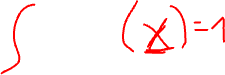 ∫ (x) = 1